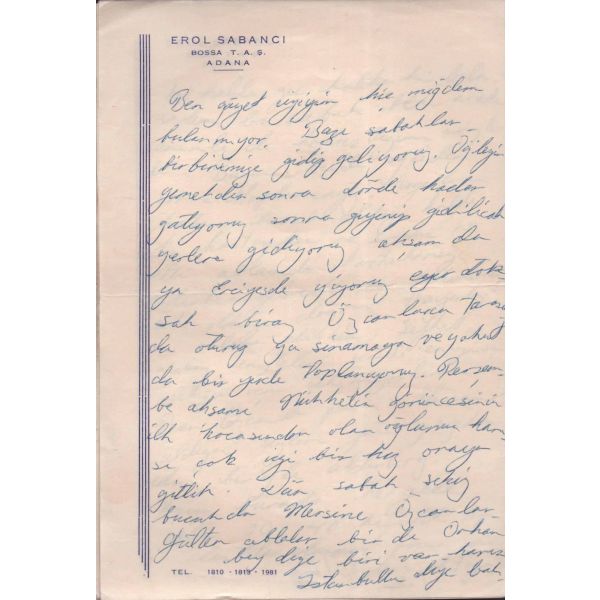 EROL SABANCI
BOSSA T. A. Ş.
ADANA
Ben gayet iyiyim hiç miğdem
bulanmıyor. Bazı sabahlar
birbirimize gidip geliyoruz. Öğleyin
yemekden sonra dörde kadar
yatıyoruz sonra giyinip gidilicek
yerlere gidiyoruz akşam da
ya Erciyesde yiyoruz eyer toksa
sak biraz Özcanlarca taraça
da oturup ya sinamaya veyahut
da bir yerde toplanıyoruz. Perşem-
be akşamı Nükhetin görümcesinin
ilk kocasından olan oğlunun karı-
sı çok iyi bir kız oraya
gittik. Dün sabah sekiz
buçukda Mersine Özcanlar
Gülten ablalar bir de Orhan
bey diye biri var karısı
İstanbullu diye
TEL. 1810 - 1819 - 1981